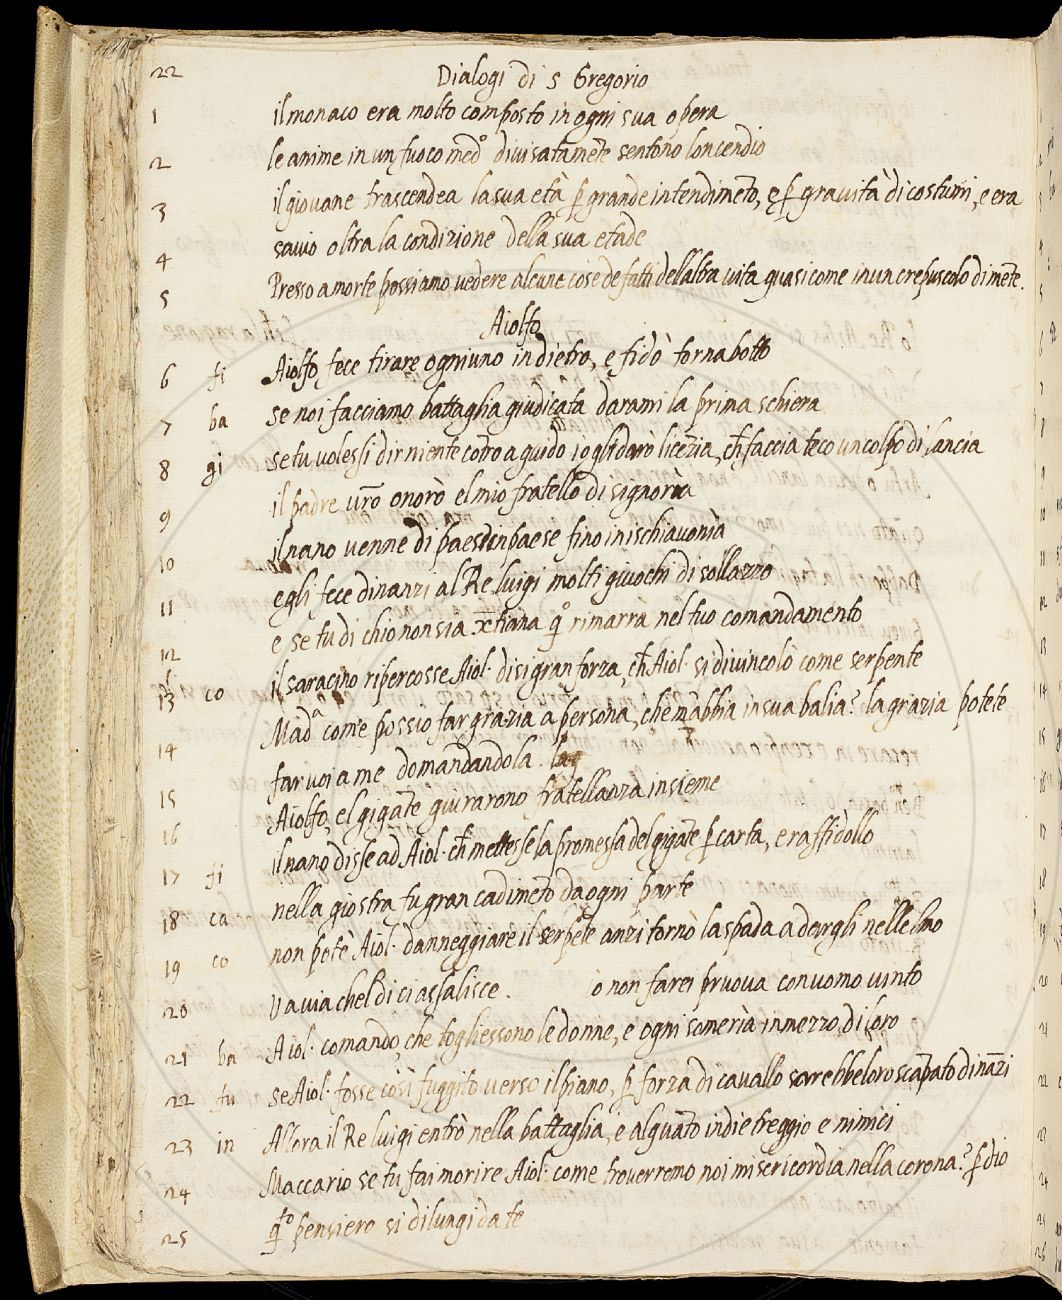 22
Dialogi di s Gregorio
1 il monaco era molto composto in ogni sua opera
2 le anime in un fuoco med° divisatam̄ete sentono loncendio
3 il giovane trascendea la sua età p̱ grande intendimēto, e p̱ gravità di costumi, e era
4 savio oltra la condizione della sua etade
5 Presso a morte possiamo vedere alcune cose de fatti dellaltra vita quasi come in un crepuscolo di mēte.
Aiolfo
6 fi Aiolfo fece tirare ogniuno in dietro, e fidò tornabotto
7 ba se noi facciamo battaglia giudicata darami la prima schiera
8 gi se tu volessi dir niente cōtro a guido io gli darò licēzia, ch̄ faccia teco un colpo di lancia
9 il padre vr̄o onorò el mio fratello di signoria
10 il nano venne di paese in paese fino in ischiavonia
11 egli fece dinanzi al Re luigi molti giuochi di sollazzo
12 e se tu di chio non sia x̄tiana q° rimarra nel tuo comandamento
13 co il saracino ripercosse Aiol· di si gran forza, ch̄ Aiol· si divincolò come serpente
Madᵃ come possio far grazia a persona, che m'abbia in sua balia? la grazia potete
14 far voi a me domandandola
15 Aiolfo, el gigāte giurarono fratellanza insieme
16 il nano disse ad Aiol· ch̄ mettesse la promessa del gigāte p̱ carta, e raffidollo
17 fi nella giostra fu gran cadimēto da ogni parte
18 ca non potè Aiol· danneggiare il serpēte anzi tornò la spada a dargli nellelmo
19 co Va via chel di ci assalisce. ò non farei pruova con uomo vinto
20 Aiol· comando, che togliessono le donne, e ogni someria in mezzo di loro
21 ba se Aiol· fosse così fuggito verso il piano, p̱ forza di cavallo sarebbe loro scāpato dināzi
22 fu Allora il Re luigi entrò nella battaglia, e alquāto indietreggio e nimici
23 in Maccario se tu fai morire Aiol· come troverremo noi misericordia nella corona? p̱ dio
24 q̱to pensiero si dilungi da te
25